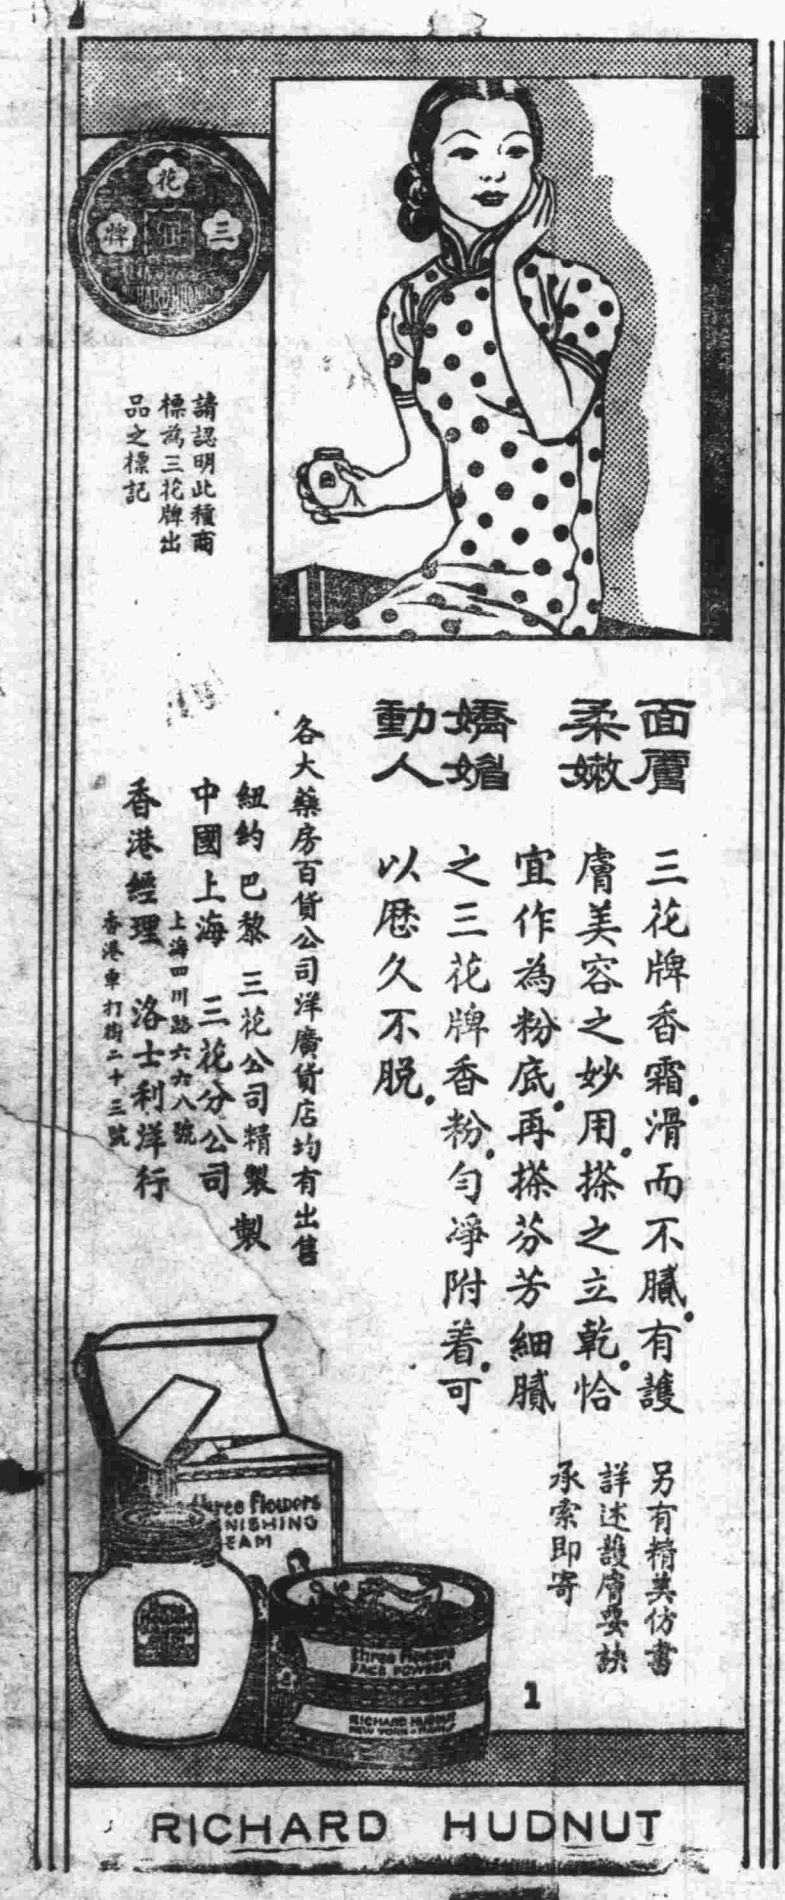 三花牌
RICHARD HUDNUT
請認明此種商
標為三花牌出
品之標記
面膚
柔嫩
嬌媚
動人
三花牌香霜。滑而不膩。有護
膚美容之妙用。搽之立乾。恰
宜作為粉底。再搽芬芳細膩
之三花牌香粉。勻凈附着。可
以歷久不脫。
各大藥房百貨公司洋廣貨店均有出售
紐約巴黎 三花公司精製 製
中國上海 三花分公司
上海四川路六六八號
香港經理 洛士利洋行
香港車打街二十三號
另有精美仿書
詳述護膚要訣
承索即寄
three flowers
VANISHING
CREAM
three flowers
FACE POWDER
RICHARD HUDNUT
NEW YORK PARIS
1
RICHARD HUDNUT